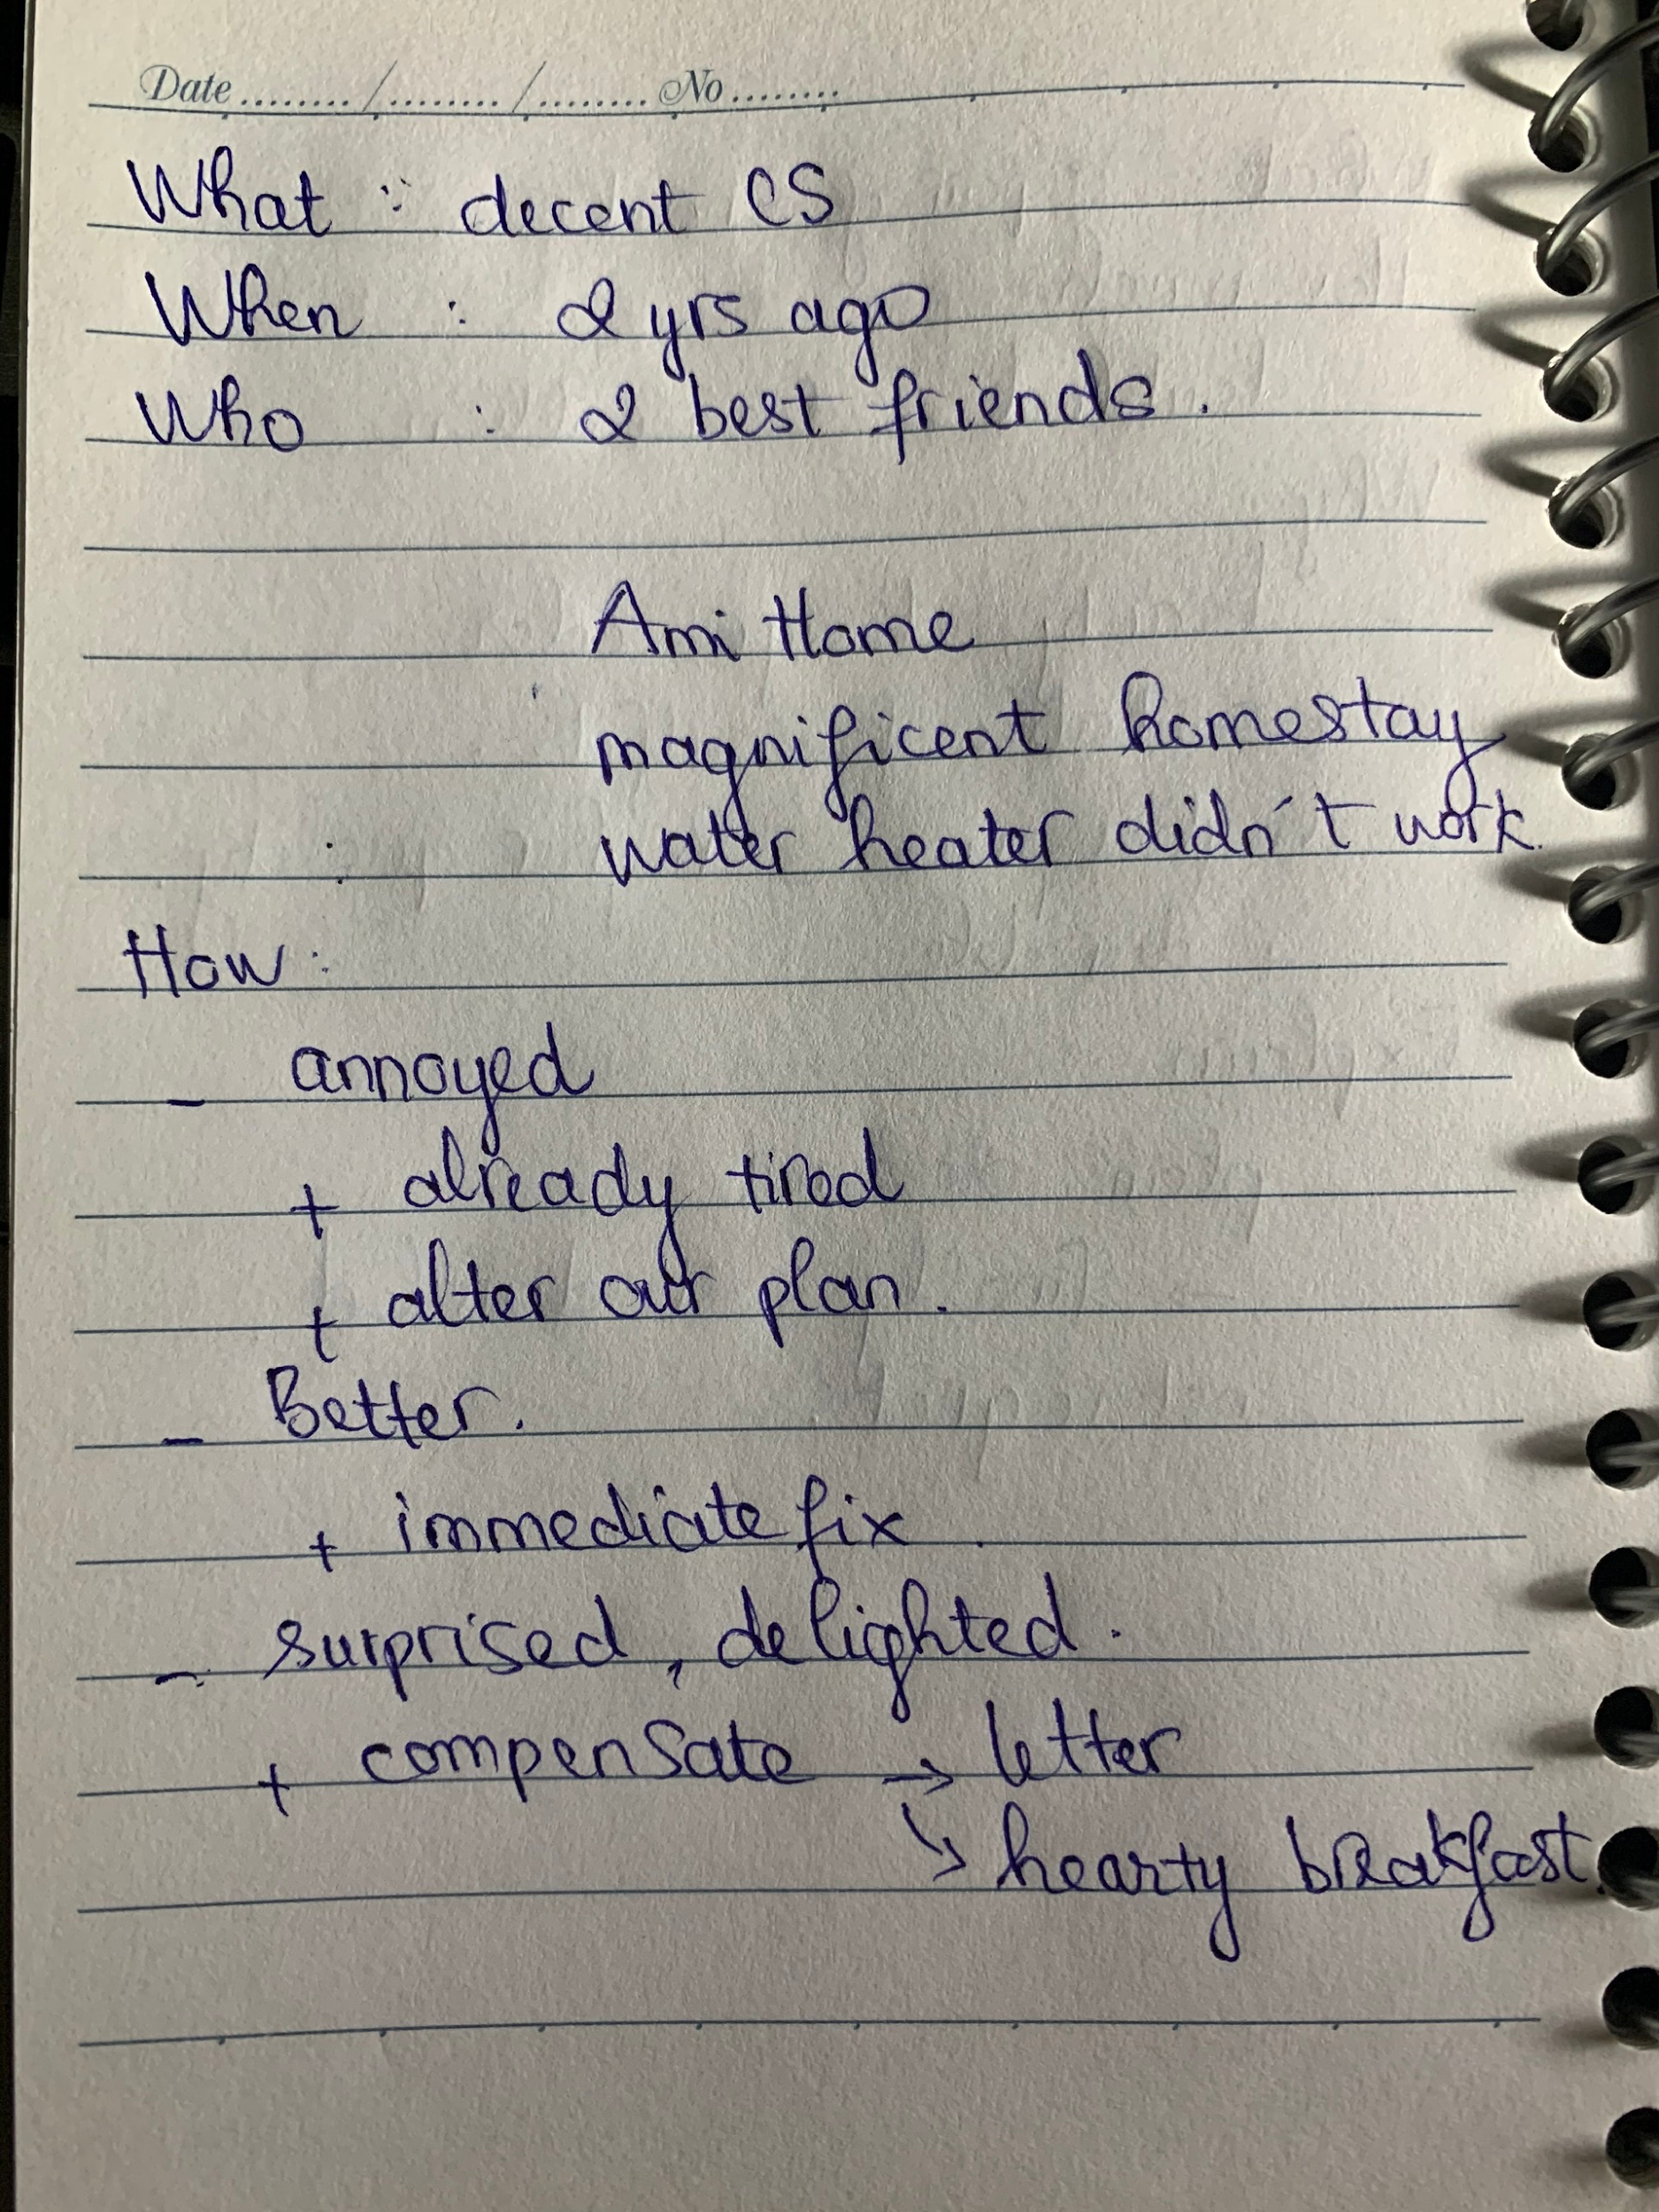 Date ......../......../........ No ........
What : decent CS
When : 2 yrs ago
Who : 2 best friends.
Ami Home
magnificent homestay
: water heater didn't work.
How :
- annoyed
+ already tired
+ alter our plan.
- Better.
+ immediate fix.
- surprised, delighted.
+ compensate → letter
↘ hearty breakfast.